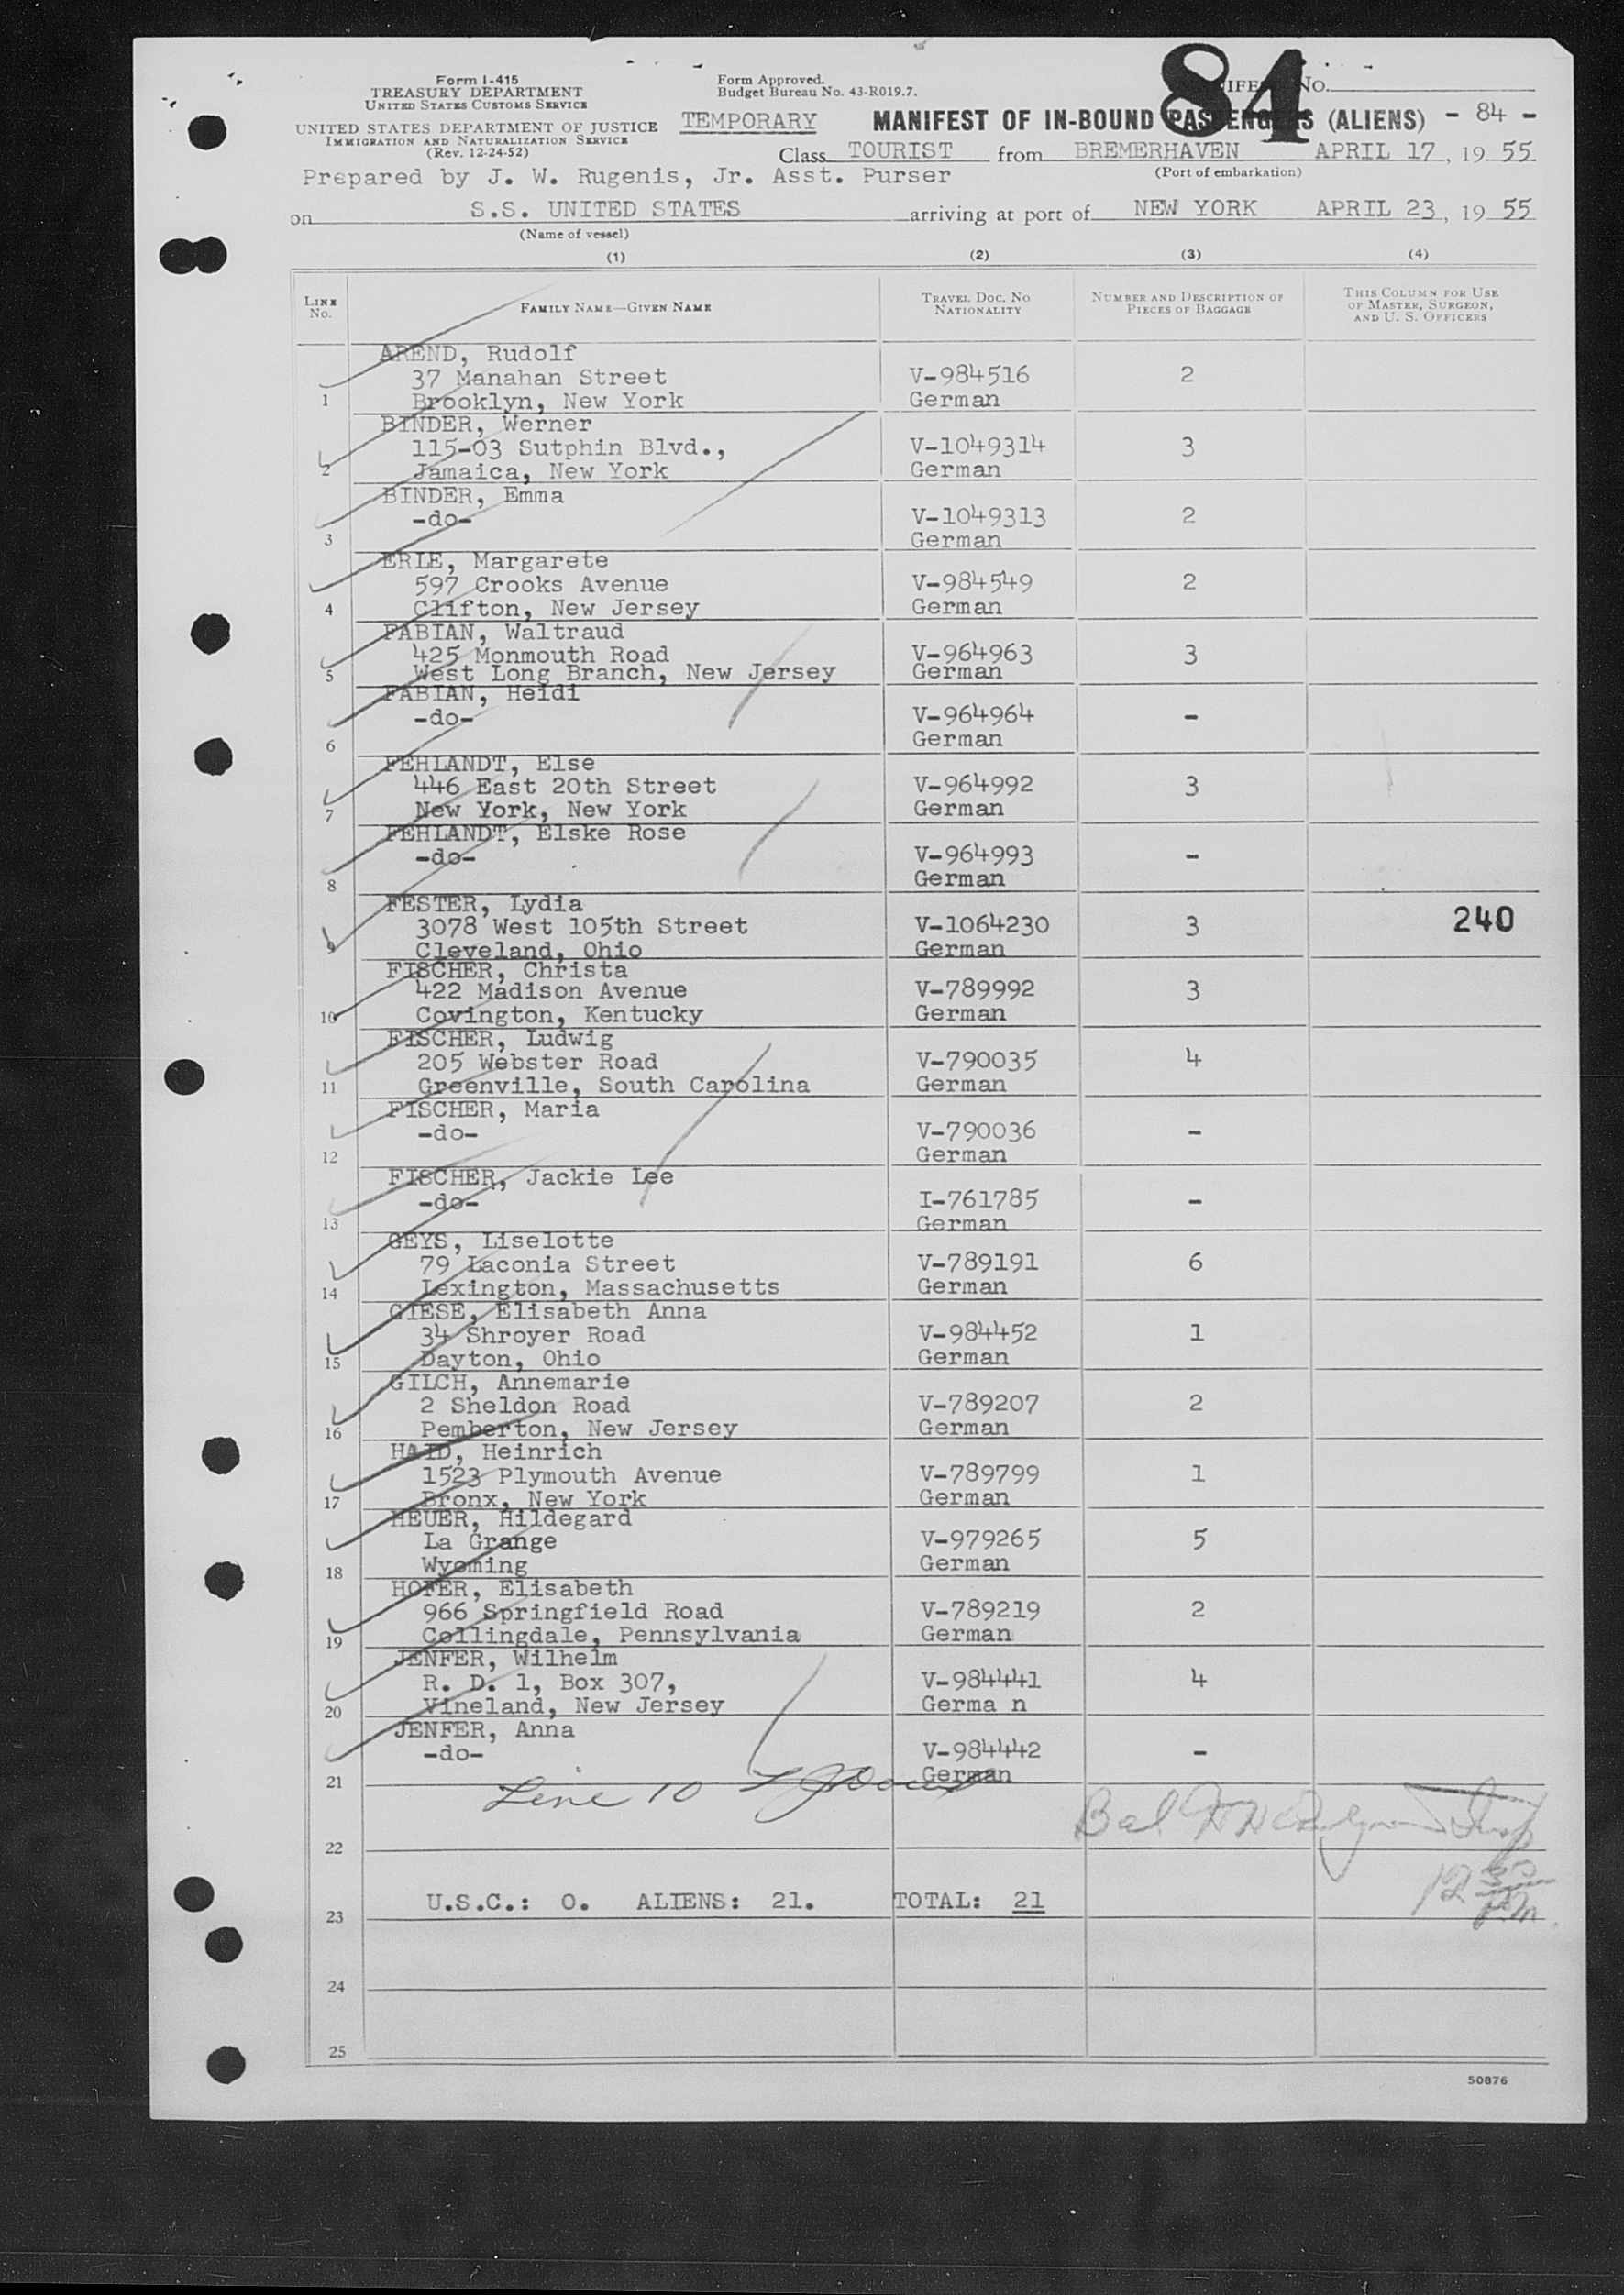 Form I-415
TREASURY DEPARTMENT
UNITED STATES CUSTOMS SERVICE
UNITED STATES DEPARTMENT OF JUSTICE
IMMIGRATION AND NATURALIZATION SERVICE
(Rev. 12-24-52)
Form Approved.
Budget Bureau No. 43-R019.7.
84
No.
TEMPORARY MANIFEST OF IN-BOUND PASSENGERS (ALIENS) - 84 -
Class TOURIST from BREMERHAVEN APRIL 17, 19 55
(Port of embarkation)
Prepared by J. W. Rugenis, Jr. Asst. Purser
on S.S. UNITED STATES arriving at port of NEW YORK APRIL 23, 19 55
(Name of vessel)
(1) (2) (3) (4)
LINE No. FAMILY NAME—GIVEN NAME TRAVEL DOC. NO NATIONALITY NUMBER AND DESCRIPTION OF PIECES OF BAGGAGE THIS COLUMN FOR USE OF MASTER, SURGEON, AND U. S. OFFICERS
AREND, Rudolf
37 Manahan Street V-984516 2
1 Brooklyn, New York German
BINDER, Werner
115-03 Sutphin Blvd., V-1049314 3
2 Jamaica, New York German
BINDER, Emma
-do- V-1049313 2
3 German
ERLE, Margarete
597 Crooks Avenue V-984549 2
4 Clifton, New Jersey German
FABIAN, Waltraud
425 Monmouth Road V-964963 3
5 West Long Branch, New Jersey German
FABIAN, Heidi
-do- V-964964 -
6 German
FEHLANDT, Else
446 East 20th Street V-964992 3
7 New York, New York German
FEHLANDT, Elske Rose
-do- V-964993 -
8 German
FESTER, Lydia
3078 West 105th Street V-1064230 3 240
9 Cleveland, Ohio German
FISCHER, Christa
422 Madison Avenue V-789992 3
10 Covington, Kentucky German
FISCHER, Ludwig
205 Webster Road V-790035 4
11 Greenville, South Carolina German
FISCHER, Maria
-do- V-790036 -
12 German
FISCHER, Jackie Lee
-do- I-761785 -
13 German
GEYS, Liselotte
79 Laconia Street V-789191 6
14 Lexington, Massachusetts German
GIESE, Elisabeth Anna
34 Shroyer Road V-984452 1
15 Dayton, Ohio German
GILCH, Annemarie
2 Sheldon Road V-789207 2
16 Pemberton, New Jersey German
HAID, Heinrich
1523 Plymouth Avenue V-789799 1
17 Bronx, New York German
HEUER, Hildegard
La Grange V-979265 5
18 Wyoming German
HOFER, Elisabeth
966 Springfield Road V-789219 2
19 Collingdale, Pennsylvania German
JENFER, Wilhelm
R. D. 1, Box 307, V-984441 4
20 Vineland, New Jersey Germa n
JENFER, Anna
-do- V-984442 -
21 German
Line 10
Bal
22
12 30 PM
U.S.C.: 0. ALIENS: 21. TOTAL: 21
23
24
25
50876